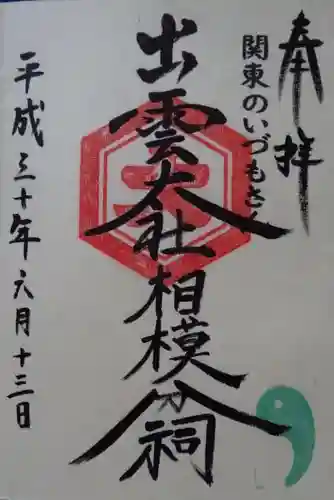 奉拝
関東のいづもさん
出雲大社相模分祠
平成三十年六月十三日